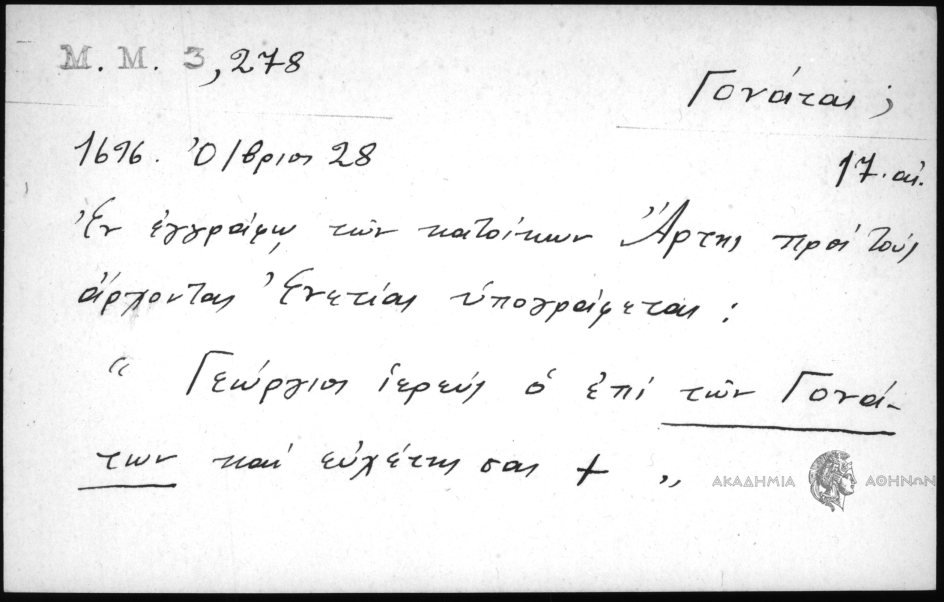 Μ. Μ. 3, 278
Γονάται;
1696. Ὀ/βριος 28
17. αἰ.
Ἐν ἐγγράφῳ τῶν κατοίκων Ἄρτης πρὸς τοὺς
ἄρχοντας Ἐνετίας ὑπογράφεται:
“ Γεώργιος ἱερεὺς ὁ ἐπὶ τῶν Γονά-
των καὶ εὐχέτης σας + „
ΑΚΑΔΗΜΙΑ ΑΘΗΝΩΝ